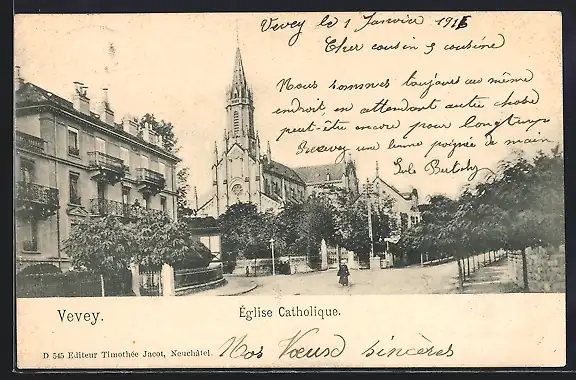 Vevey le 1 Janvier 191
Cher cousin & cousine
Nous sommes toujours au même
endroit en attendant autre chose
peut-être encore pour longtemps
Recevez une bonne poignée de main
Jule
Vevey.
Église Catholique.
D 545 Editeur Timothée Jacot, Neuchâtel.
Nos Voeux sincères